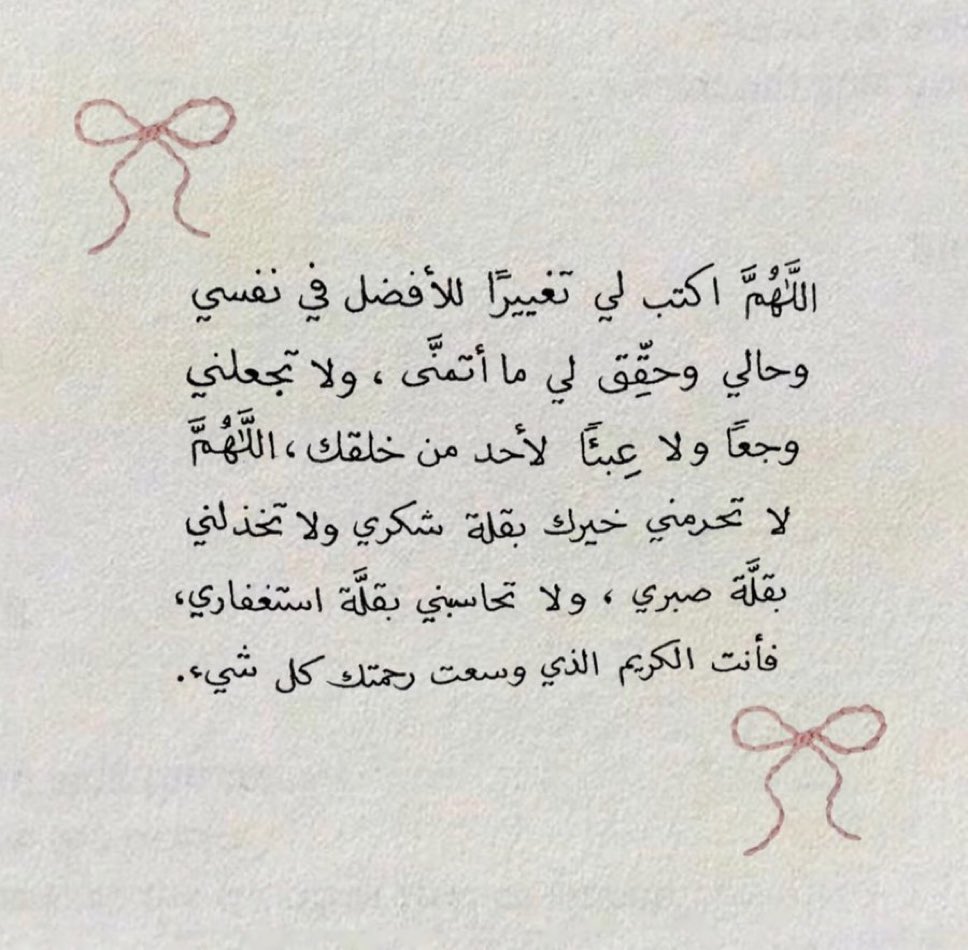 اللَّهُمَّ اكتب لي تغييرًا للأفضل في نفسي
وحالي وحقِّق لي ما أتمنَّى ، ولا تجعلني
وجعًا ولا عِبئًا لأحد من خلقك ، اللَّهُمَّ
لا تحرمني خيرك بقلة شكري ولا تخذلني
بقلَّة صبري ، ولا تحاسبني بقلَّة استغفاري،
فأنت الكريم الذي وسعت رحمتك كل شيء.